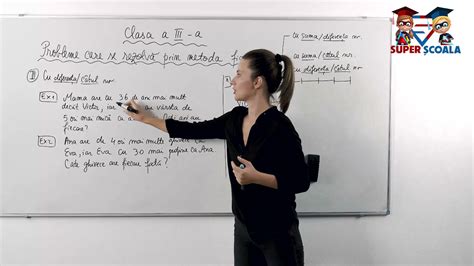 Clasa a III-a
Probleme care se rezolvă prin metoda
II Cu diferența/câtul nr.
Ex 1 Mama are cu 36 de ani mai mult
decât Victor, iar vârsta de
5 ori mai mică
fiecare?
Ex 2 Ana are de 4 ori mai multe ca
Eva, iar Eva cu 30 mai puține ca Ana
Câte are fiecare fată?
cu suma/diferența nr.
cu suma/câtul nr.
cu diferența/câtul nr.
SUPER ȘCOALA